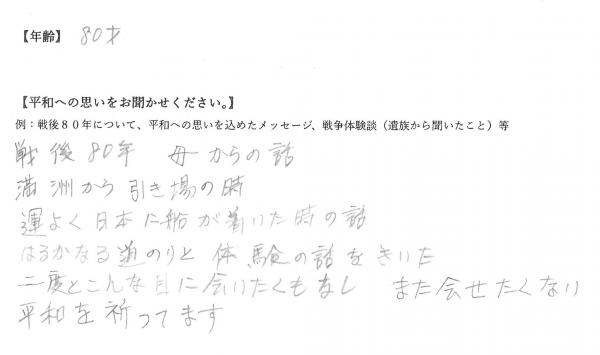 【年齢】 80才
【平和への思いをお聞かせください。】
例：戦後８０年について、平和への思いを込めたメッセージ、戦争体験談（遺族から聞いたこと）等
戦後80年 母からの話
満洲から引き場の時
運よく日本に船が着いた時の話
はるかなる道のりと体験の話をきいた
二度とこんな目に会いたくもなし また会せたくない
平和を祈ってます